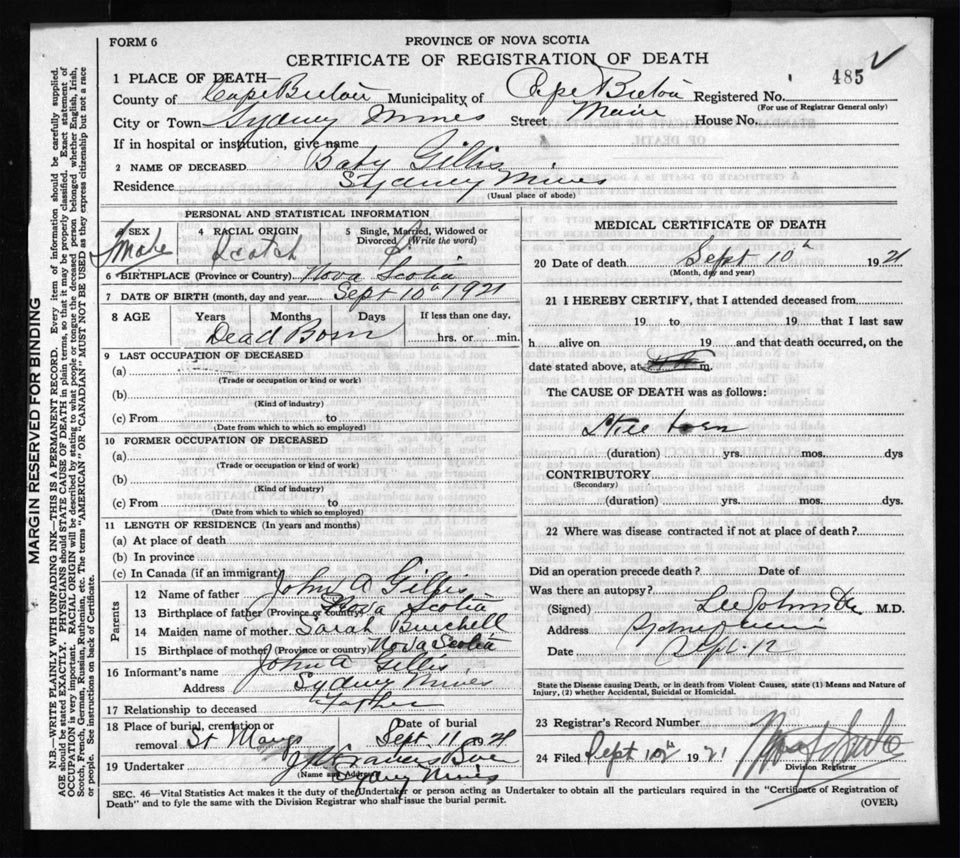 FORM 6
PROVINCE OF NOVA SCOTIA
CERTIFICATE OF REGISTRATION OF DEATH
485
1 PLACE OF DEATH—
County of Cape Breton Municipality of Cape Breton Registered No.
(For use of Registrar General only)
City or Town Sydney Mines Street Main House No.
If in hospital or institution, give name
2 NAME OF DECEASED Baby Gillis
Residence Sydney Mines
(Usual place of abode)
PERSONAL AND STATISTICAL INFORMATION
SEX 4 RACIAL ORIGIN 5 Single, Married, Widowed or Divorced (Write the word)
Male Scotch S
6 BIRTHPLACE (Province or Country) Nova Scotia
7 DATE OF BIRTH (month, day and year) Sept 10th 1921
8 AGE Years Months Days If less than one day, hrs. or min.
Dead Born
9 LAST OCCUPATION OF DECEASED
(a)
(Trade or occupation or kind or work)
(b)
(Kind of industry)
(c) From to
(Date from which to which so occupied)
10 FORMER OCCUPATION OF DECEASED
(a)
(Trade or occupation or kind of work)
(b)
(Kind of industry)
(c) From to
(Date from which to which so occupied)
11 LENGTH OF RESIDENCE (In years and months)
(a) At place of death
(b) In province
(c) In Canada (if an immigrant)
Parents
12 Name of father John A Gillis
13 Birthplace of father (Province or country) Nova Scotia
14 Maiden name of mother Sarah Burchell
15 Birthplace of mother (Province or country) Nova Scotia
16 Informant's name John A Gillis
Address Sydney Mines
17 Relationship to deceased Father
18 Place of burial, cremation or removal St Marys Date of burial Sept 11 21
19 Undertaker
(Name and Address)
Sydney Mines
MEDICAL CERTIFICATE OF DEATH
20 Date of death Sept 10th 1921
(Month, day and year)
21 I HEREBY CERTIFY, that I attended deceased from
19 to 19 that I last saw
h alive on 19 and that death occurred, on the
date stated above, at m.
The CAUSE OF DEATH was as follows:
Still born
(duration) yrs. mos. dys
CONTRIBUTORY
(Secondary)
(duration) yrs. mos. dys.
22 Where was disease contracted if not at place of death?
Did an operation precede death? Date of
Was there an autopsy?
(Signed) M.D.
Address Sydney Mines
Date Sept. 12
State the Disease causing Death, or in death from Violent Causes, state (1) Means and Nature of
Injury, (2) whether Accidental, Suicidal or Homicidal.
23 Registrar's Record Number
24 Filed Sept 1921
Division Registrar
SEC. 46—Vital Statistics Act makes it the duty of the Undertaker or person acting as Undertaker to obtain all the particulars required in the "Certificate of Registration of
Death" and to fyle the same with the Division Registrar who shall issue the burial permit.
(OVER)
MARGIN RESERVED FOR BINDING
N.B.—WRITE PLAINLY WITH UNFADING INK—THIS IS A PERMANENT RECORD. Every item of information should be carefully supplied.
AGE should be stated EXACTLY. PHYSICIANS should STATE CAUSE OF DEATH in plain terms, so that it may be properly classified. Exact statement of
OCCUPATION is very important. RACIAL ORIGIN will be described by stating to what people or tongue the deceased person belonged whether English, Irish,
Scotch, French, German, Russian, Ruthenian, etc. The terms "AMERICAN" OR "CANADIAN" MUST NOT BE USED as they express citizenship but not a race
or people. See instructions on back of Certificate.